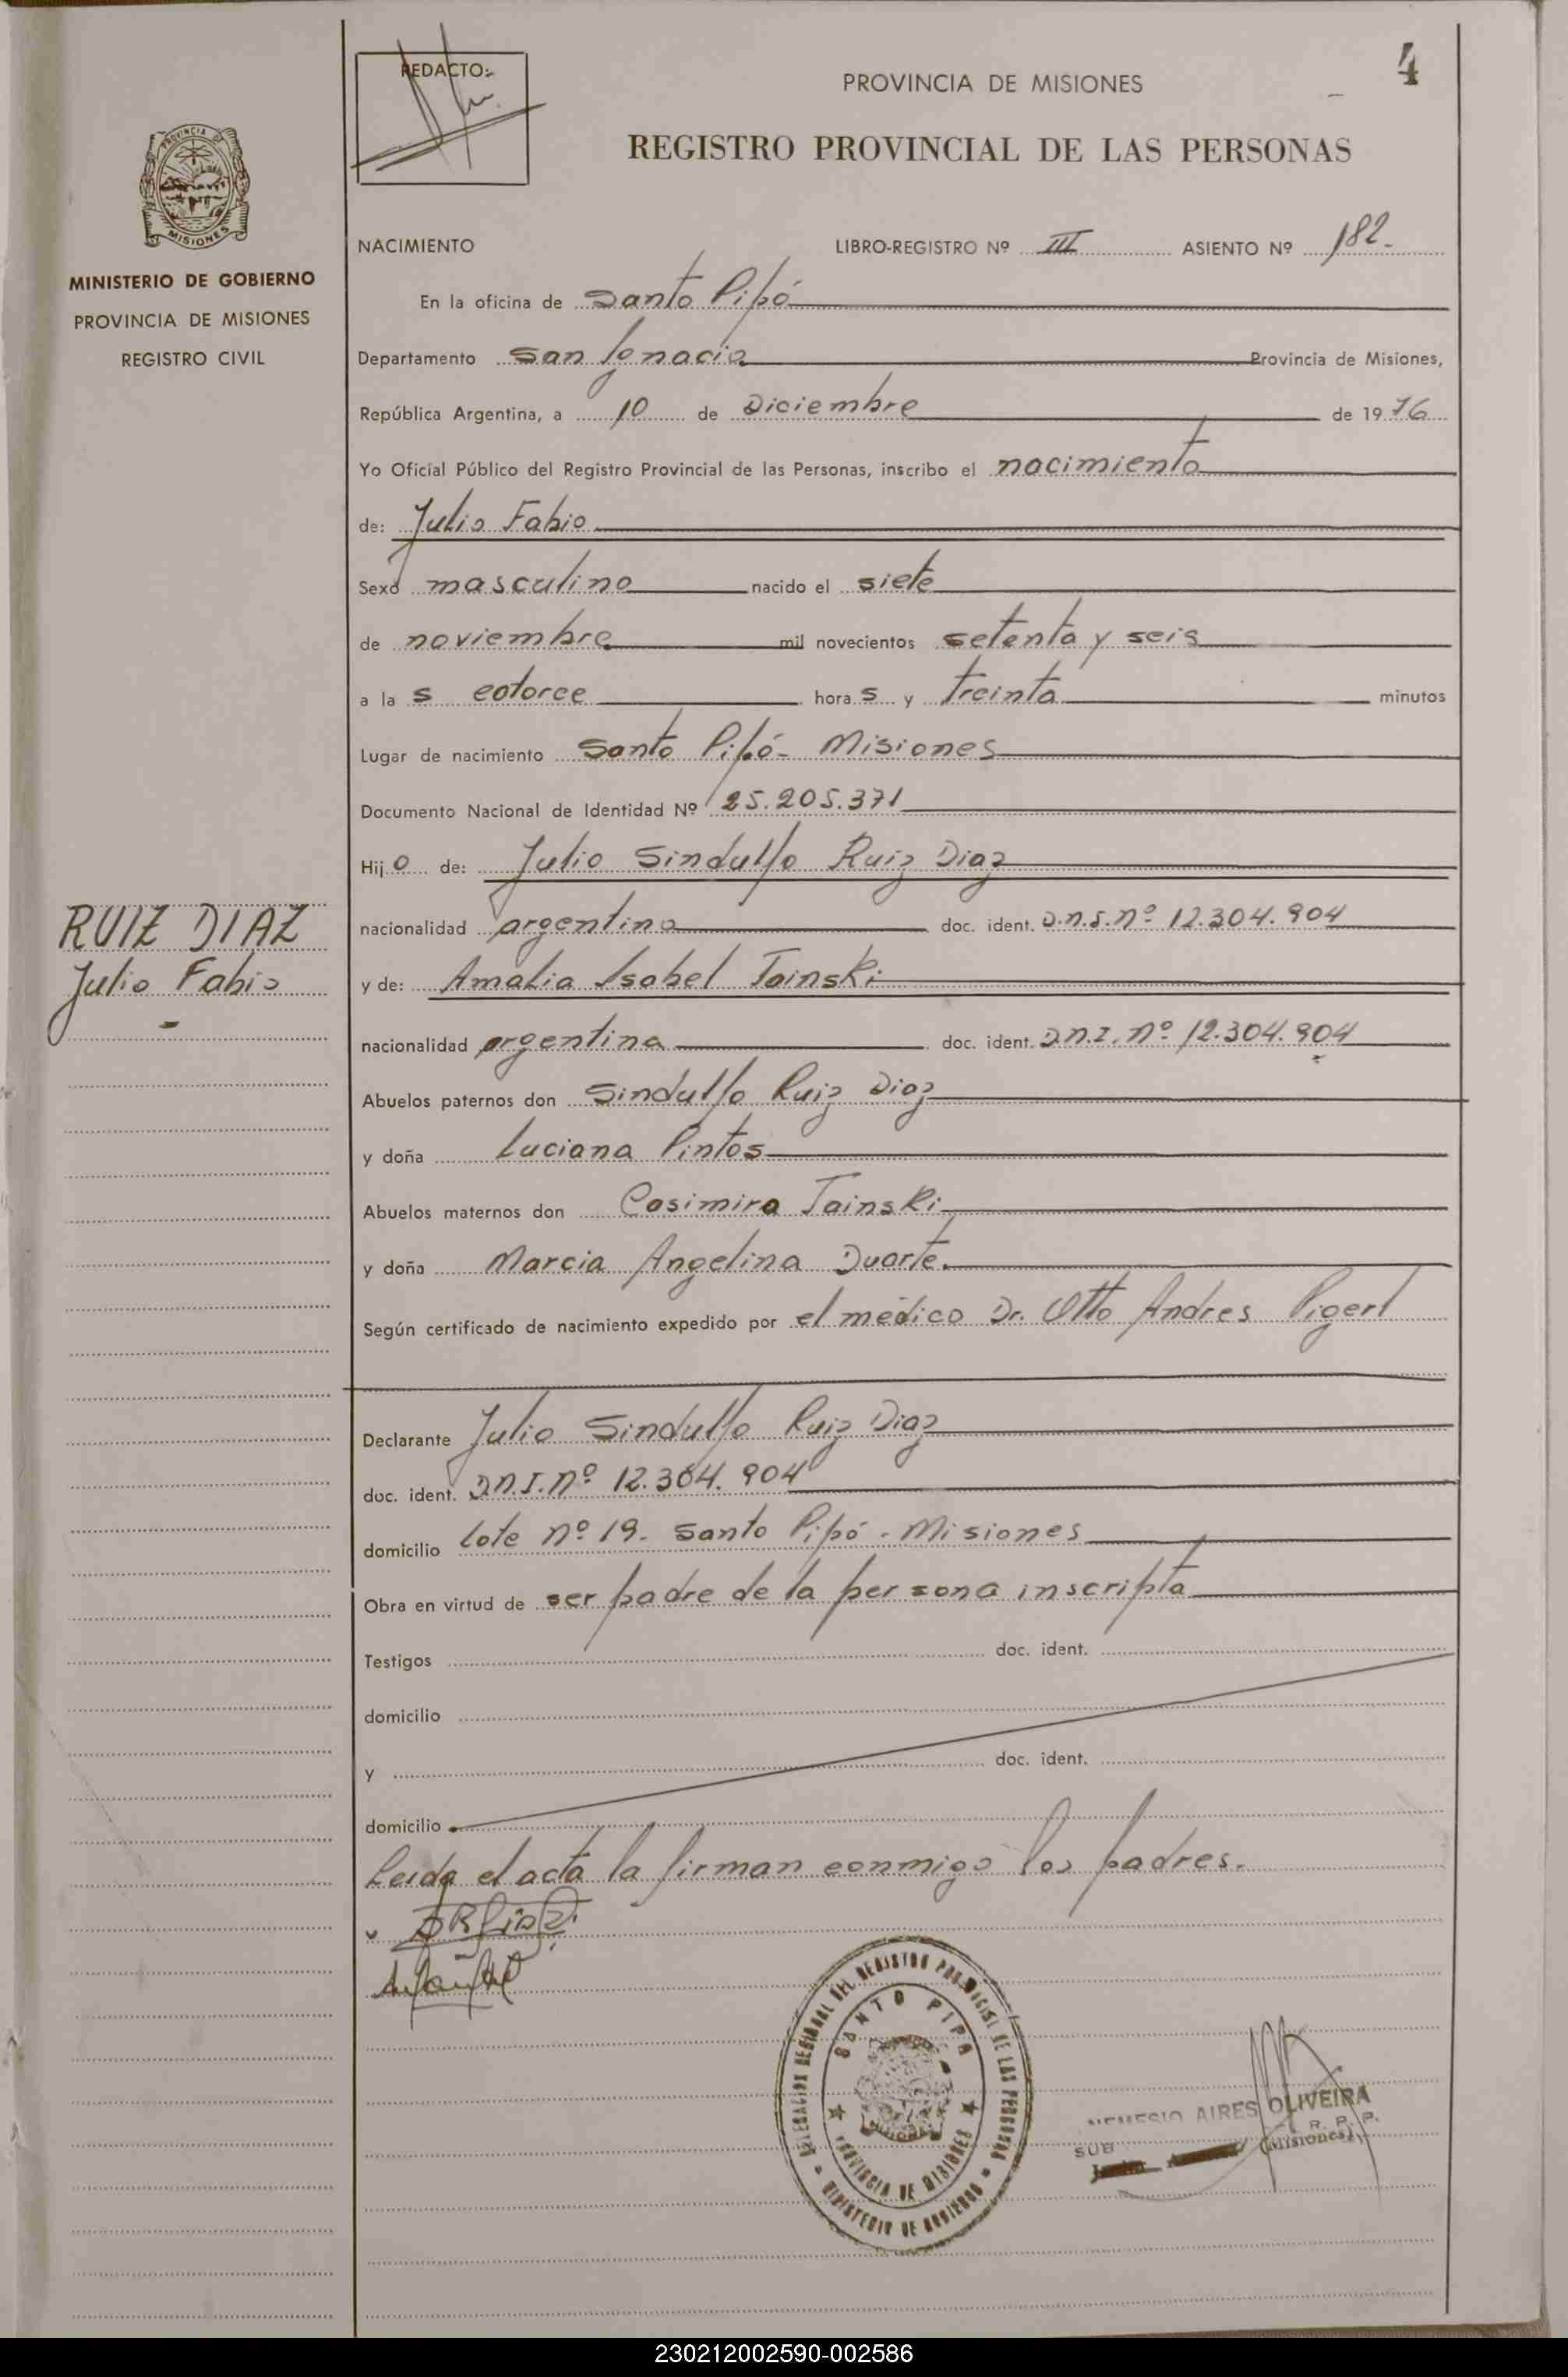 4
REDACTO:
PROVINCIA DE MISIONES
REGISTRO PROVINCIAL DE LAS PERSONAS
PROVINCIA DE
MISIONES
MINISTERIO DE GOBIERNO
PROVINCIA DE MISIONES
REGISTRO CIVIL
NACIMIENTO LIBRO-REGISTRO Nº III ASIENTO Nº 182.
En la oficina de Santo Pipó
Departamento San Ignacio Provincia de Misiones,
República Argentina, a 10 de Diciembre de 1976
Yo Oficial Público del Registro Provincial de las Personas, inscribo el nacimiento
de: Julio Fabio
Sexo masculino nacido el siete
de noviembre mil novecientos setenta y seis
a la s catorce hora s y treinta minutos
Lugar de nacimiento Santo Pipó - Misiones
Documento Nacional de Identidad Nº 25.205.371
Hij o de: Julio Sindulfo Ruiz Diaz
RUIZ DIAZ
Julio Fabio
nacionalidad argentina doc. ident. D.N.I. nº 12.304.904
y de: Amalia Isabel Tainski
nacionalidad argentina doc. ident. D.N.I. nº 12.304.904
Abuelos paternos don Sindulfo Ruiz Diaz
y doña Luciana Pintos
Abuelos maternos don Casimiro Tainski
y doña Marcia Angelina Duarte.
Según certificado de nacimiento expedido por el médico Dr. Otto Andres Pigerl
Declarante Julio Sindulfo Ruiz Diaz
doc. ident. D.N.I. nº 12.304.904
domicilio lote nº 19. Santo Pipó - Misiones
Obra en virtud de ser padre de la persona inscripta
Testigos doc. ident.
domicilio
y doc. ident.
domicilio
Leida el acta la firman conmigo los padres.
DELEGACION REGIONAL DEL REGISTRO PROVINCIAL DE LAS PERSONAS
SANTO PIPA
PROVINCIA DE MISIONES
MINISTERIO DE GOBIERNO
NEMESIO AIRES OLIVEIRA
SUB R. P. P.
(Misiones)
230212002590-002586